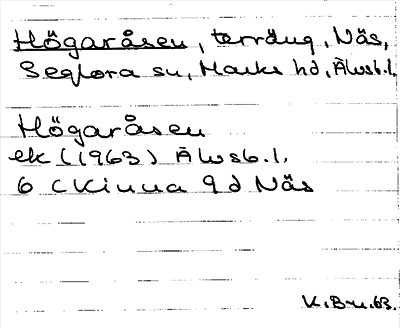 Högaråsen, terräng, Näs,
Seglora sn, Marks hd, Älvsb.l.
Högaråsen
ek (1963) Älvsb.l.
6 C Kinna 9d Näs
K.Bru.63.